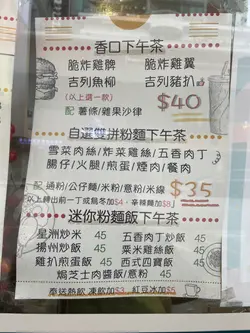 香口下午茶
脆炸雞髀 脆炸雞翼
吉列魚柳 吉列豬扒
(以上選一款)
配 薯條/雜果沙律 $40
自選雙拼粉麵下午茶
雪菜肉絲/炸菜雞絲/五香肉丁
腸仔/火腿/煎蛋/煙肉/餐肉
配 通粉/公仔麵/米粉/意粉/米線 $35
以上轉出前一丁或烏冬加$4，辛辣麵加$8
迷你粉麵飯下午茶
星洲炒米 45 五香肉丁炒飯 45
揚州炒飯 45 粟米雞絲飯 45
雞扒煎蛋飯 45 西式四寶飯 45
焗芝士肉醬飯/意粉 45
奉送熱飲 凍飲加$3 紅豆冰加$5